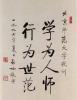 北京师范大学校训
学为人师
行为世范